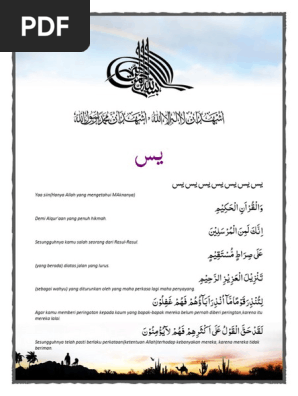 PDF
اشهد ان لا اله الا الله و اشهد ان محمد رسول الله
يس
يس يس يس يس يس يس يس
Yaa siin(hanya Allah yang mengetahui Maknanya)
وَالْقُرْآنِ الْحَكِيْمِ
Demi Alqur'aan yang penuh hikmah.
اِنَّكَ لَمِنَ الْمُرْسَلِيْنَ
Sesungguhnya kamu salah seorang dari Rasul-Rasul
عَلَى صِرَاطٍ مُسْتَقِيْمٍ
(yang berada) diatas jalan yang lurus
تَنْزِيْلَ الْعَزِيْزِ الرَّحِيْمِ
(sebagai wahyu) yang diturunkan oleh yang maha perkasa lagi maha penyayang
لِتُنْذِرَ قَوْمًا مَّا اُنْذِرَ اٰبَاؤُهُمْ فَهُمْ غٰفِلُوْنَ
Agar kamu memberi peringatan kepada kaum yang bapak-bapak mereka belum pernah diberi peringatan,karena itu
mereka lalai
لَقَدْ حَقَّ الْقَوْلُ عَلٰى اَكْثَرِهِمْ فَهُمْ لَايُؤْمِنُوْنَ
Sesungguhnya telah pasti berlaku perkataan(ketentuan Allah)terhadap kebanyakan mereka, karena mereka tidak
beriman